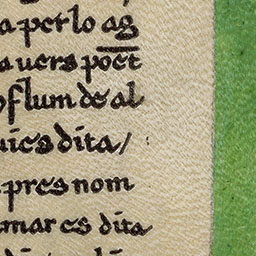 a per lo ag
a uers poet
oflum de al
uies dita/
pres nom
mar es dita